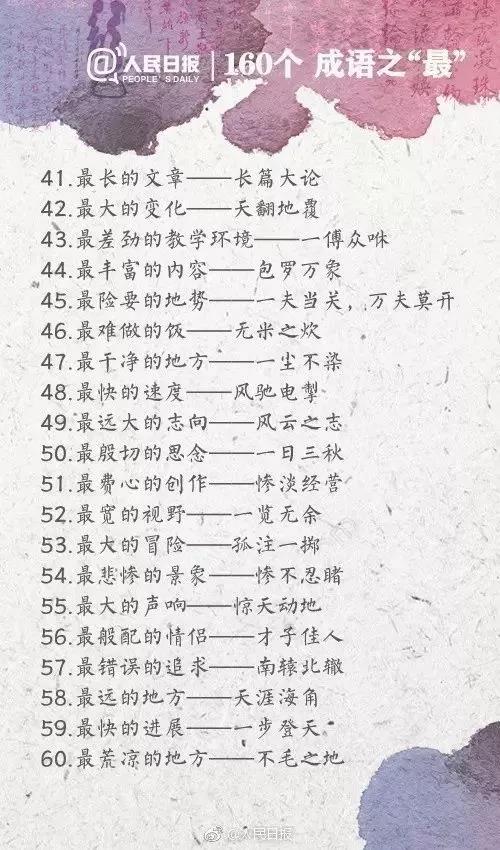 @人民日报 PEOPLE'S DAILY 160个 成语之“最”
41.最长的文章——长篇大论
42.最大的变化——天翻地覆
43.最差劲的教学环境——一傅众咻
44.最丰富的内容——包罗万象
45.最险要的地势——一夫当关，万夫莫开
46.最难做的饭——无米之炊
47.最干净的地方——一尘不染
48.最快的速度——风驰电掣
49.最远大的志向——风云之志
50.最殷切的思念——一日三秋
51.最费心的创作——惨淡经营
52.最宽的视野——一览无余
53.最大的冒险——孤注一掷
54.最悲惨的景象——惨不忍睹
55.最大的声响——惊天动地
56.最般配的情侣——才子佳人
57.最错误的追求——南辕北辙
58.最远的地方——天涯海角
59.最快的进展——一步登天
60.最荒凉的地方——不毛之地
@人民日报